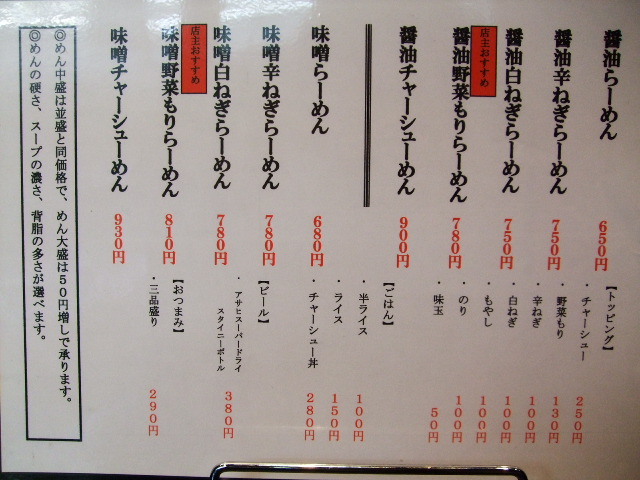 醤油らーめん 650円
醤油辛ねぎらーめん 750円
醤油白ねぎらーめん 750円
店主おすすめ
醤油野菜もりらーめん 780円
醤油チャーシューめん 900円
味噌らーめん 680円
味噌辛ねぎらーめん 780円
味噌白ねぎらーめん 780円
店主おすすめ
味噌野菜もりらーめん 810円
味噌チャーシューめん 930円
【トッピング】
・チャーシュー 250円
・野菜もり 130円
・辛ねぎ 100円
・白ねぎ 100円
・もやし 100円
・のり 100円
・味玉 50円
【ごはん】
・半ライス 100円
・ライス 150円
・チャーシュー丼 280円
【ビール】
・アサヒスーパードライ
スタイニーボトル 380円
【おつまみ】
・三品盛り 290円
◎めん中盛は並盛と同価格で、めん大盛は50円増しで承ります。
◎めんの硬さ、スープの濃さ、背脂の多さが選べます。